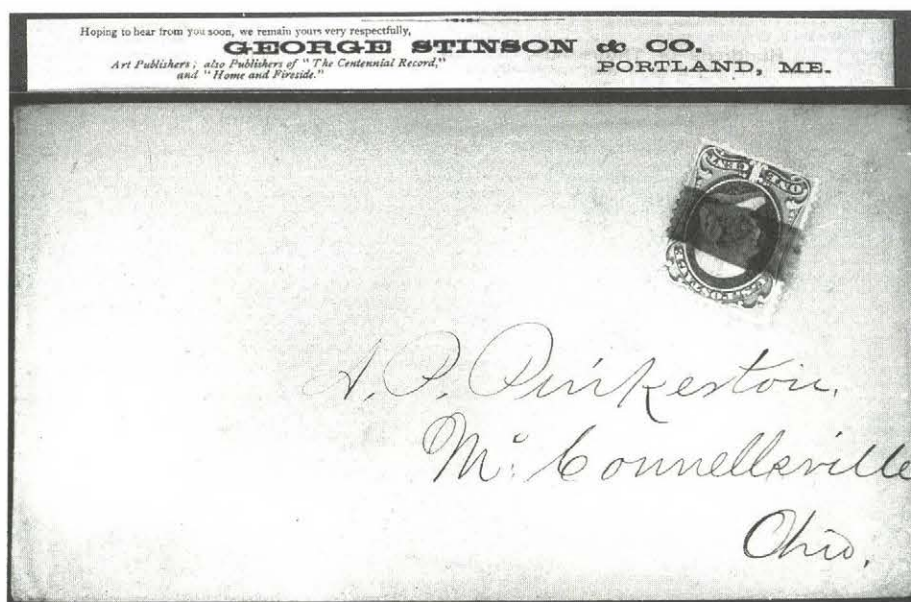 Hoping to hear from you soon, we remain yours very respectfully,
GEORGE STINSON & CO.
Art Publishers; also Publishers of "The Centennial Record,"
and "Home and Fireside."
PORTLAND, ME.
A. P. Pinkerton,
Mc. Connellsville
Ohio.